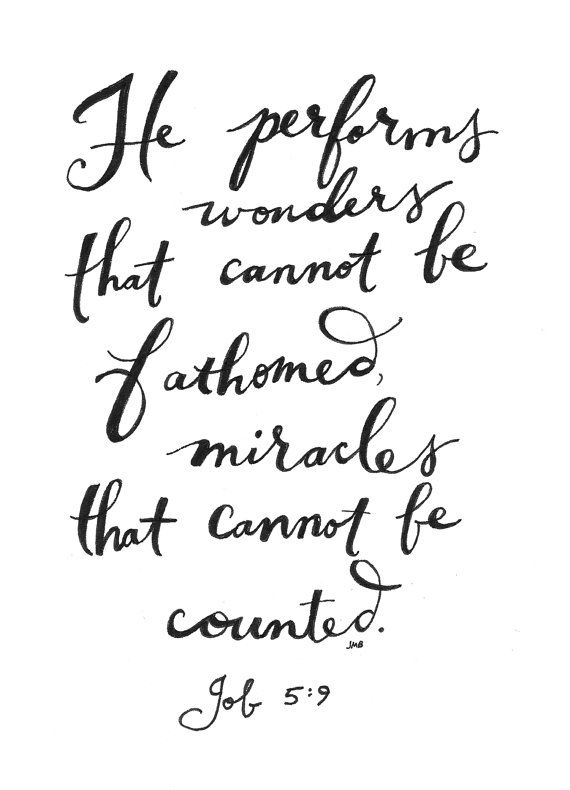 He performs
wonders
that cannot be
fathomed,
miracles
that cannot be
counted.
JMB
Job 5:9